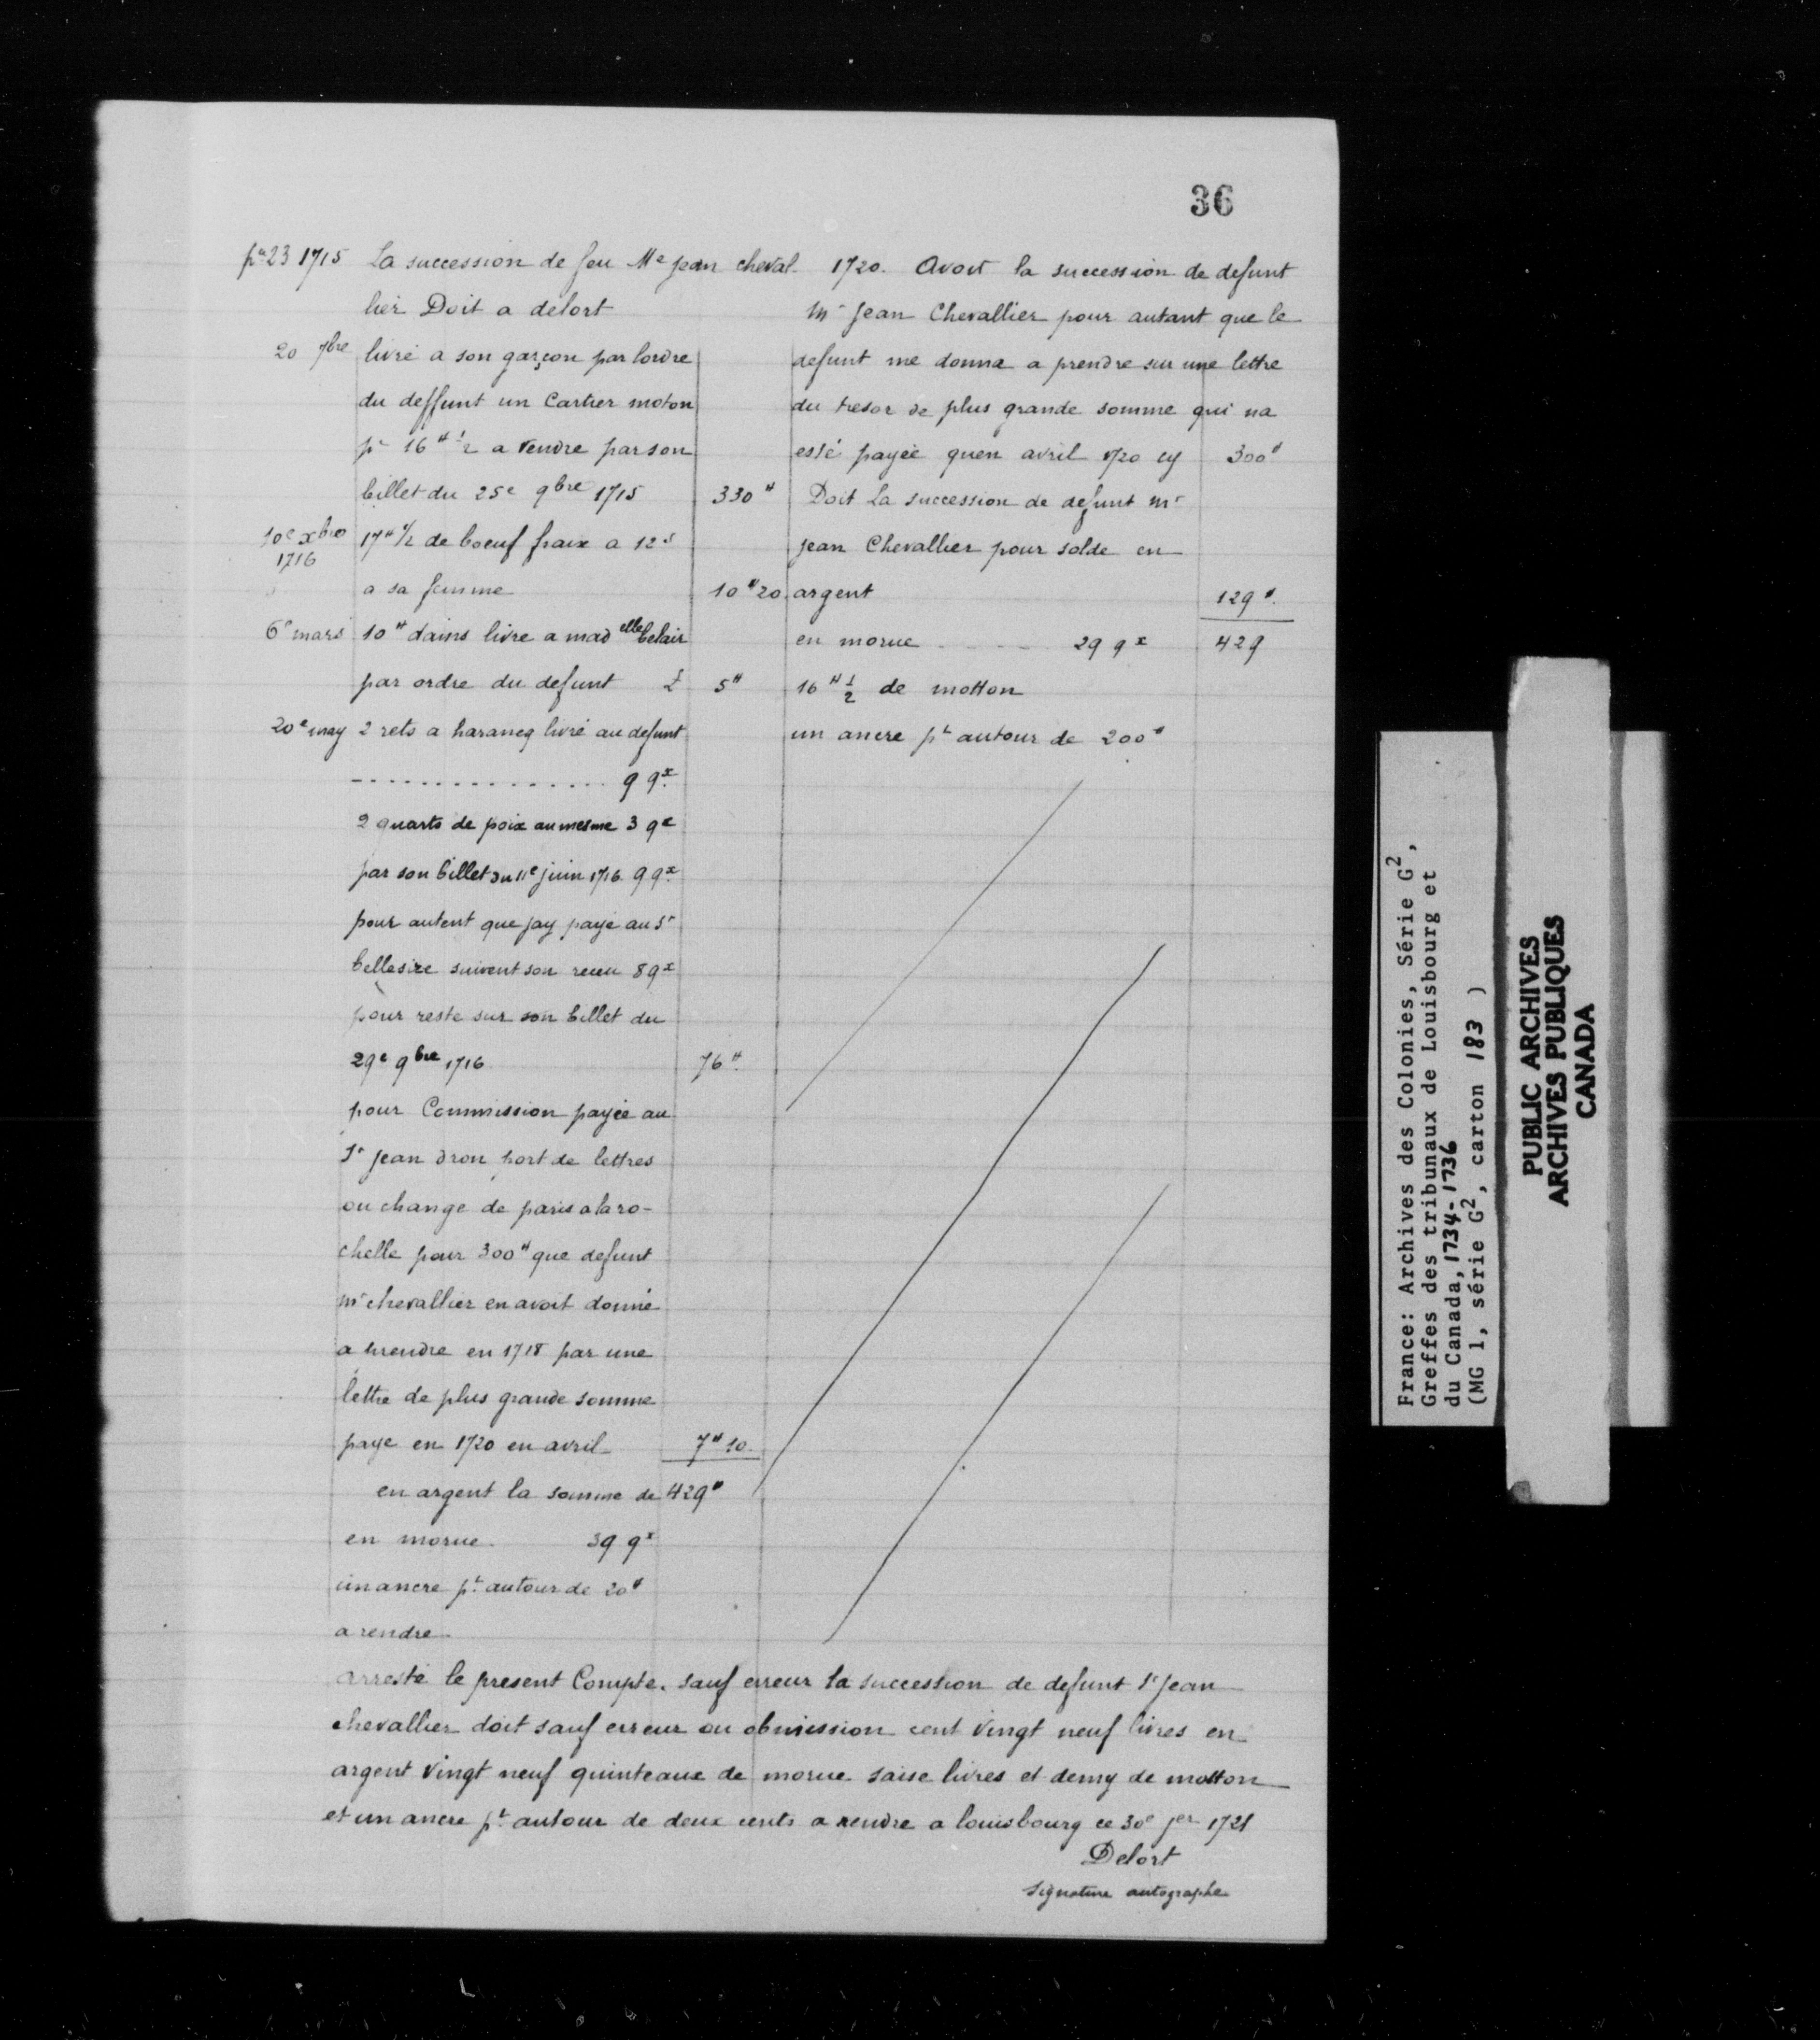 36
pce 23 1715 La succession de feu Me Jean cheval-
lier Doit a delort
20 7bre livré a son garçon par lordre
du deffunt un Cartier moton
pr 16# ½ a rendre par son
billet du 25e 9bre 1715 330#
10e xbre 1716 17# ½ de boeuf fraix a 12s
a sa femme 10# 20
6e mars 10# dains livre a madelle belair
par ordre du defunt £ 5#
20e may 2 rets a harancq livré au defunt
- - - - - - - 9 qx
2 quarts de poix au mesme 3 qx
par son billet du 11e juin 1716. 9 qx
pour autent que jay paye au Sr
bellesire suivent son receu 8 qx
pour reste sur son billet du
29e 9bre 1716 76#
pour Commission payée au
Sr Jean dron port de lettres
ou change de paris a laro-
chelle pour 300# que defunt
mr chevallier en avoit donné
a prendre en 1718 par une
lettre de plus grande somme
paye en 1720 en avril 7# 10
en argent la somme de 429#
en morue 39 qx
un ancre pt autour de 20#
a rendre
1720. Avoit la succession de defunt
mr Jean Chevallier pour autant que le
defunt me donna a prendre sur une lettre
du tresor de plus grande somme qui na
esté payée quen avril 1720 cy 300#
Doit La succession de defunt mr
Jean Chevallier pour solde en
argent 129#
en morue - - - - 29 qx 429
16# ½ de motton
un ancre pt autour de 200#
arresté le present Compte. sauf erreur la succession de defunt Sr Jean
chevallier doit sauf erreur ou obmission cent vingt neuf livres en
argent vingt neuf quinteaux de morue saise livres et demy de motton
et un ancre pt autour de deux cents a rendre a louisbourg ce 30e jer 1721
Delort
Signature autographe
France: Archives des Colonies, Série G2,
Greffes des tribunaux de Louisbourg et
du Canada, 1734-1736
(MG 1, série G2, carton 183 )
PUBLIC ARCHIVES
ARCHIVES PUBLIQUES
CANADA